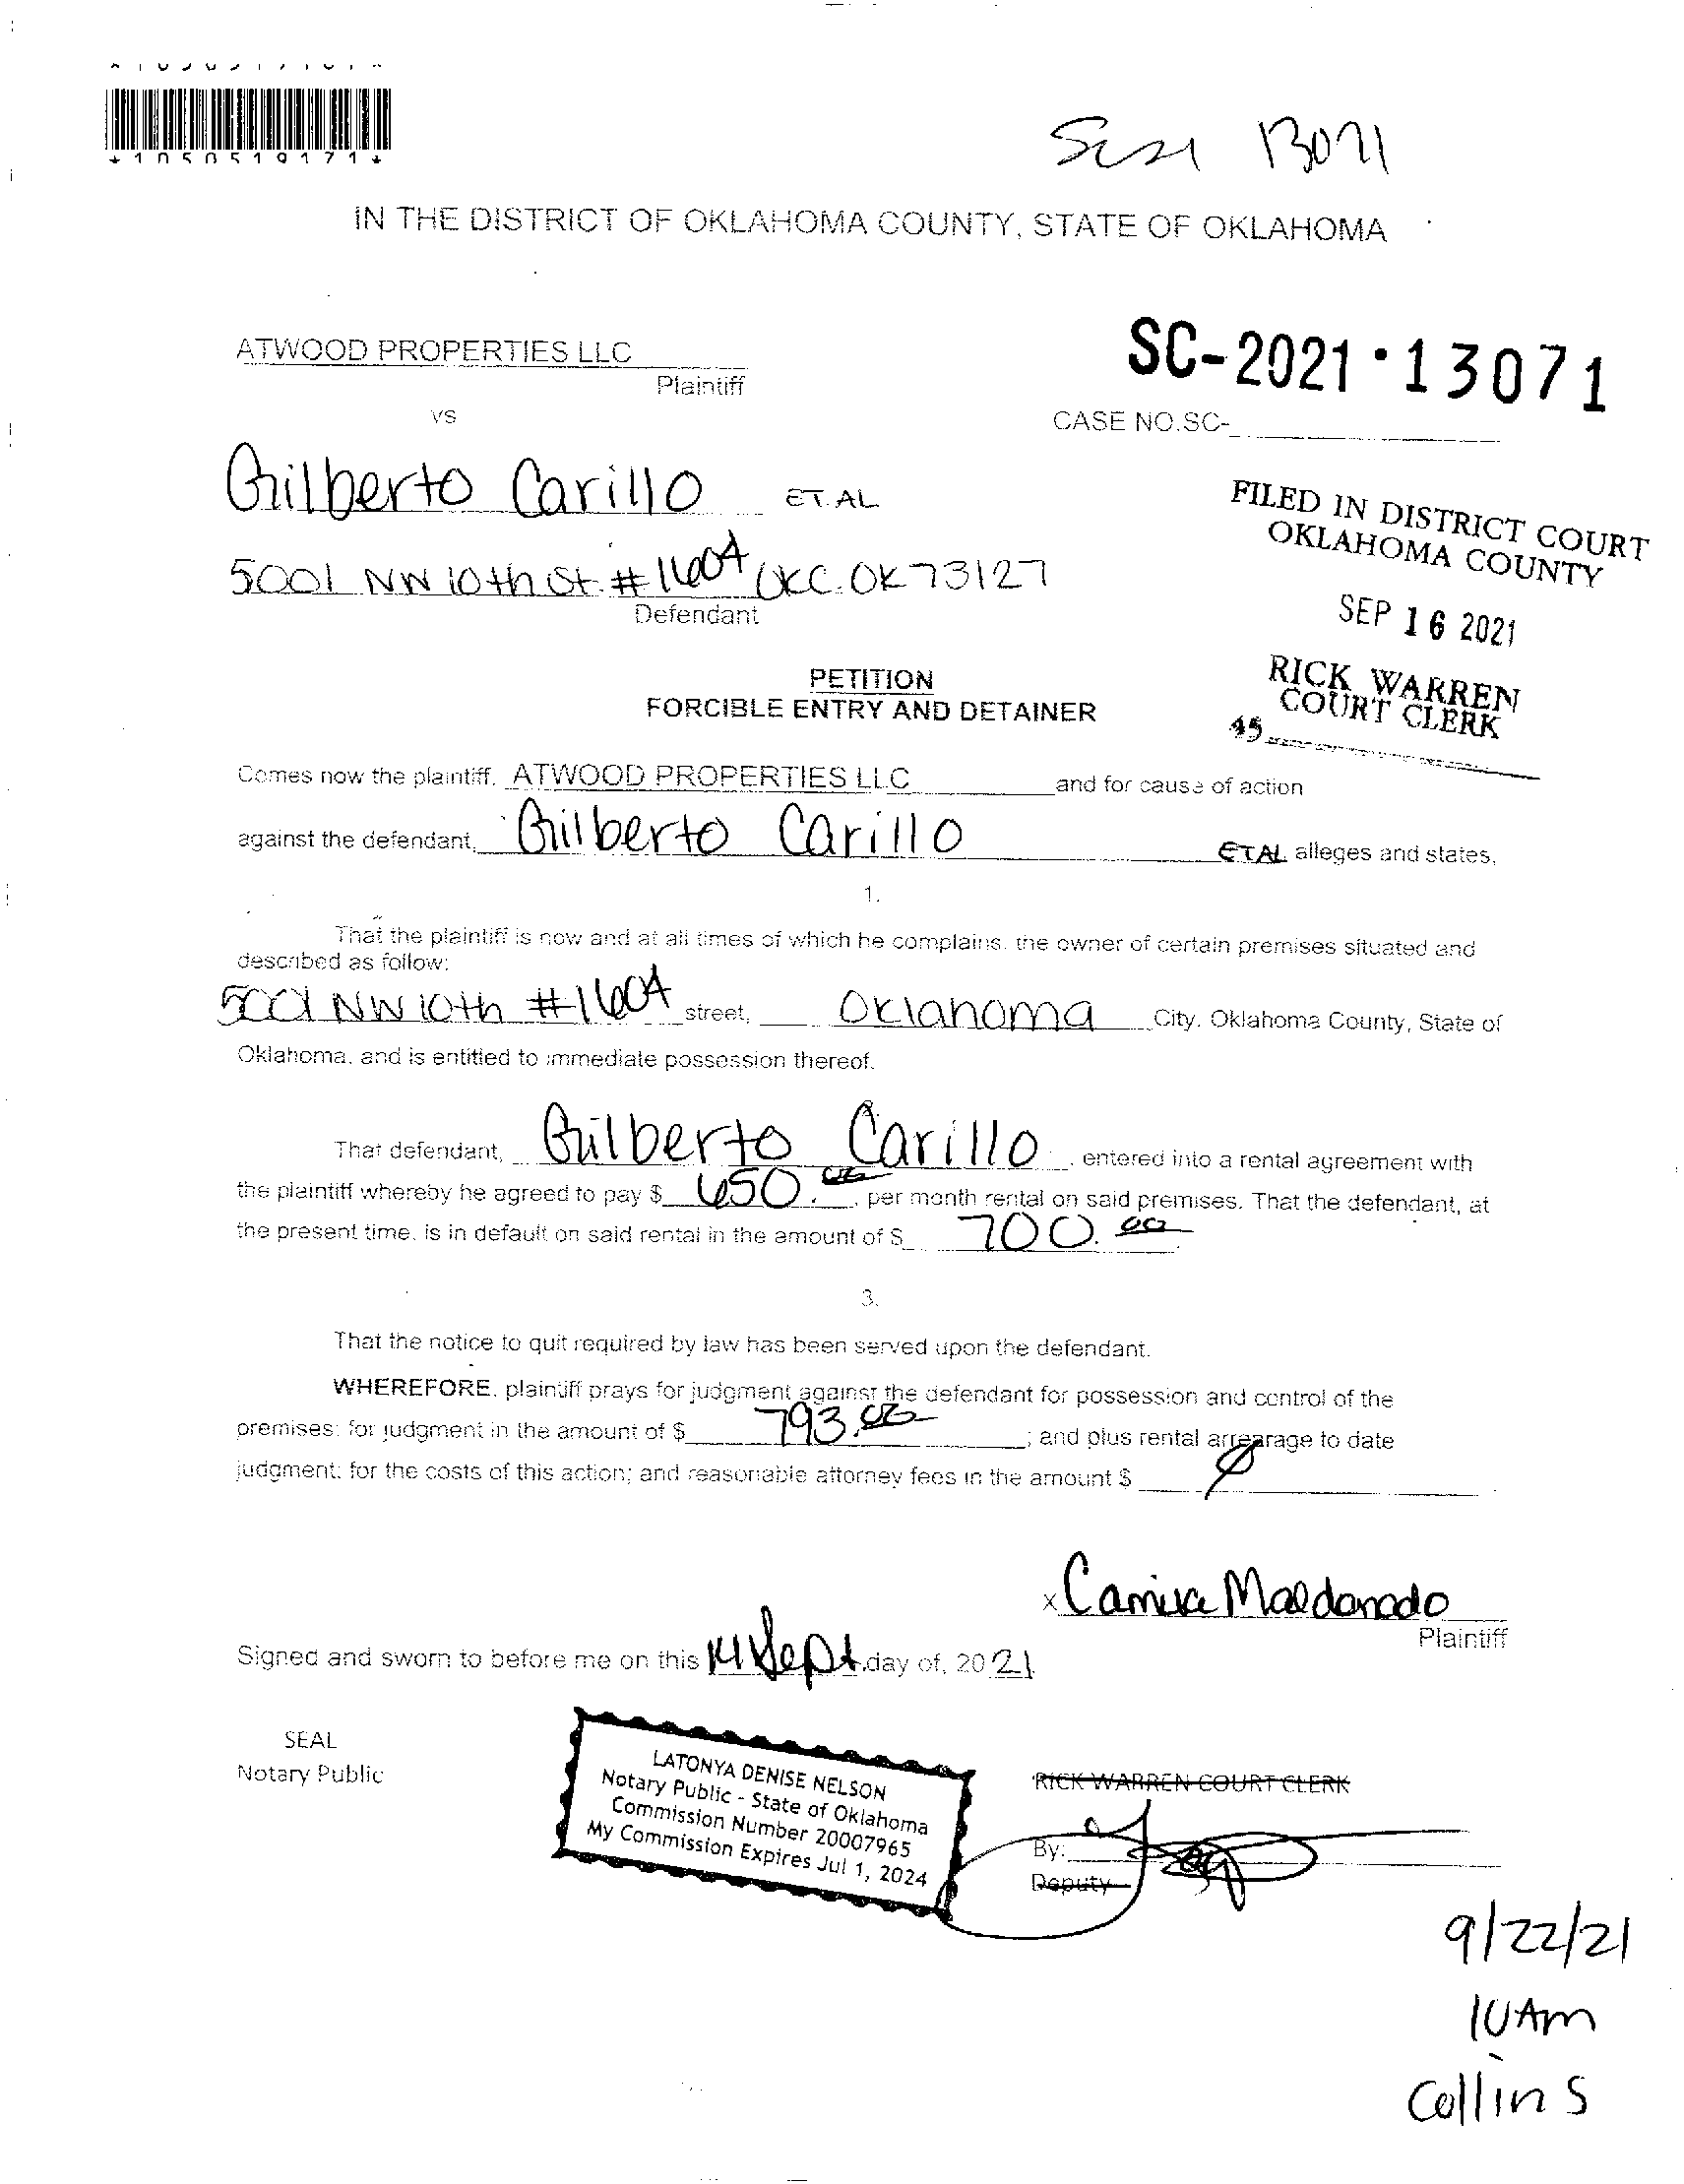 *1050519171*
13071
IN THE DISTRICT OF OKLAHOMA COUNTY, STATE OF OKLAHOMA
ATWOOD PROPERTIES LLC
Plaintiff
vs
SC-2021·13071
CASE NO.SC-
Gilberto Carillo ET. AL
5001 NW 10th St. #1604 OKC. OK 73127
Defendant
FILED IN DISTRICT COURT
OKLAHOMA COUNTY
SEP 16 2021
RICK WARREN
COURT CLERK
45
PETITION
FORCIBLE ENTRY AND DETAINER
Comes now the plaintiff, ATWOOD PROPERTIES LLC and for cause of action
against the defendant, Gilberto Carillo ETAL alleges and states,
1.
That the plaintiff is now and at all times of which he complains, the owner of certain premises situated and
described as follow:
5001 NW 10th #1604 street, Oklahoma City, Oklahoma County, State of
Oklahoma, and is entitled to immediate possession thereof.
That defendant, Gilberto Carillo, entered into a rental agreement with
the plaintiff whereby he agreed to pay $ 650.00, per month rental on said premises. That the defendant, at
the present time, is in default on said rental in the amount of $ 700.00
3.
That the notice to quit required by law has been served upon the defendant.
WHEREFORE, plaintiff prays for judgment against the defendant for possession and control of the
premises: for judgment in the amount of $ 793.00; and plus rental arrearage to date
judgment: for the costs of this action; and reasonable attorney fees in the amount $ Ø
x Camixa Maldonado
Plaintiff
Signed and sworn to before me on this 14 Sept. day of, 2021
SEAL
Notary Public
LATONYA DENISE NELSON
Notary Public - State of Oklahoma
Commission Number 20007965
My Commission Expires Jul 1, 2024
RICK WARREN COURT CLERK
By:
Deputy
9/22/21
10 Am
Collins